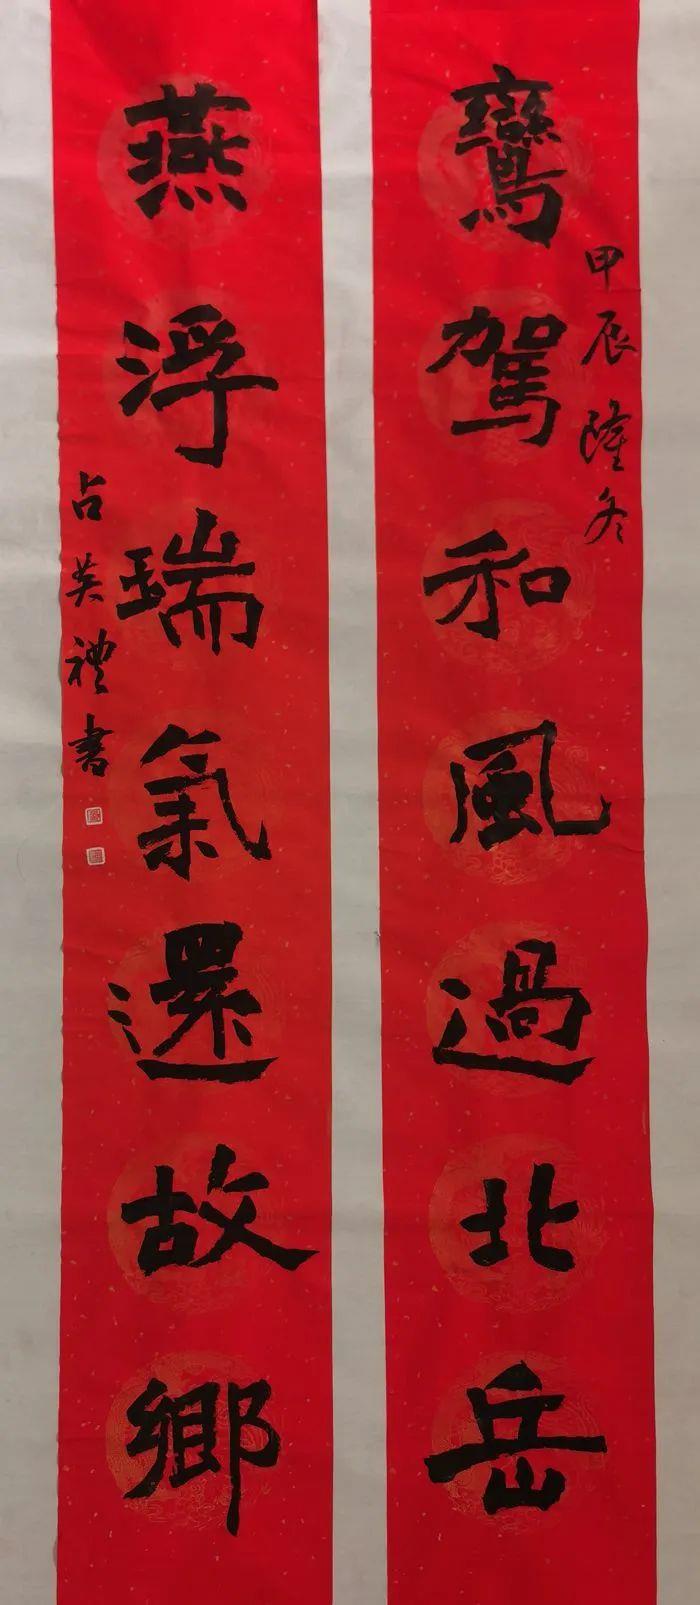 鸞駕和風過北岳
甲辰隆冬
燕浮瑞氣還故鄉
占英禮書